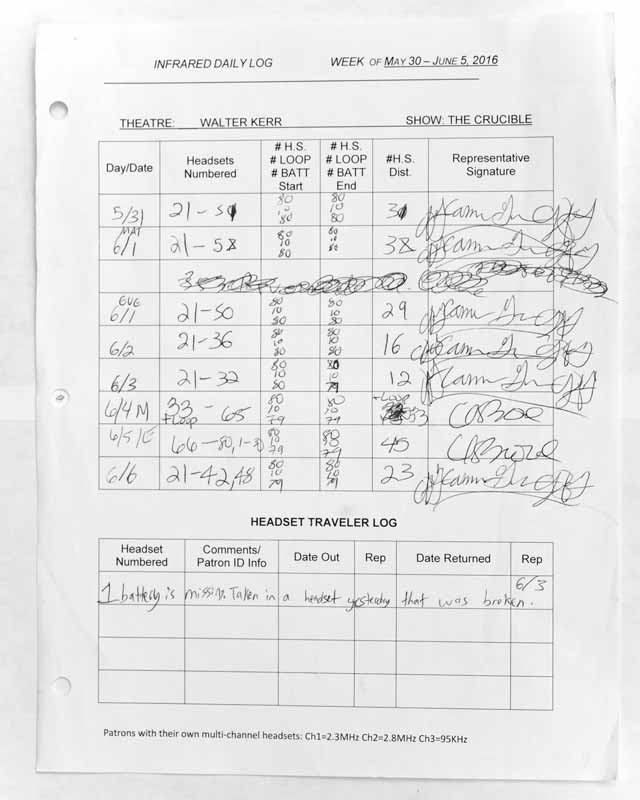 INFRARED DAILY LOG WEEK OF MAY 30 – JUNE 5, 2016
THEATRE: WALTER KERR SHOW: THE CRUCIBLE
Day/Date Headsets Numbered # H.S. # LOOP # BATT Start # H.S. # LOOP # BATT End #H.S. Dist. Representative Signature
5/31 21-51 80 10 80 80 10 80 31
MAT 6/1 21-58 80 10 80 80 10 80 38
EVE 6/1 21-50 80 10 80 80 10 80 29
6/2 21-36 80 10 80 80 10 80 16
6/3 21-32 80 10 80 80 10 79 12
6/4 M 33 - 65 +Loop 80 10 79 80 10 79 +Loop 33
6/5/E 66-80, 1-30 80 10 79 80 80 79 45
6/6 21-42, 48 80 10 79 80 10 79 23
HEADSET TRAVELER LOG
Headset Numbered Comments/ Patron ID Info Date Out Rep Date Returned Rep
6/3
1 battery is missing. Taken in a headset yesterday that was broken.
Patrons with their own multi-channel headsets: Ch1=2.3MHz Ch2=2.8MHz Ch3=95KHz